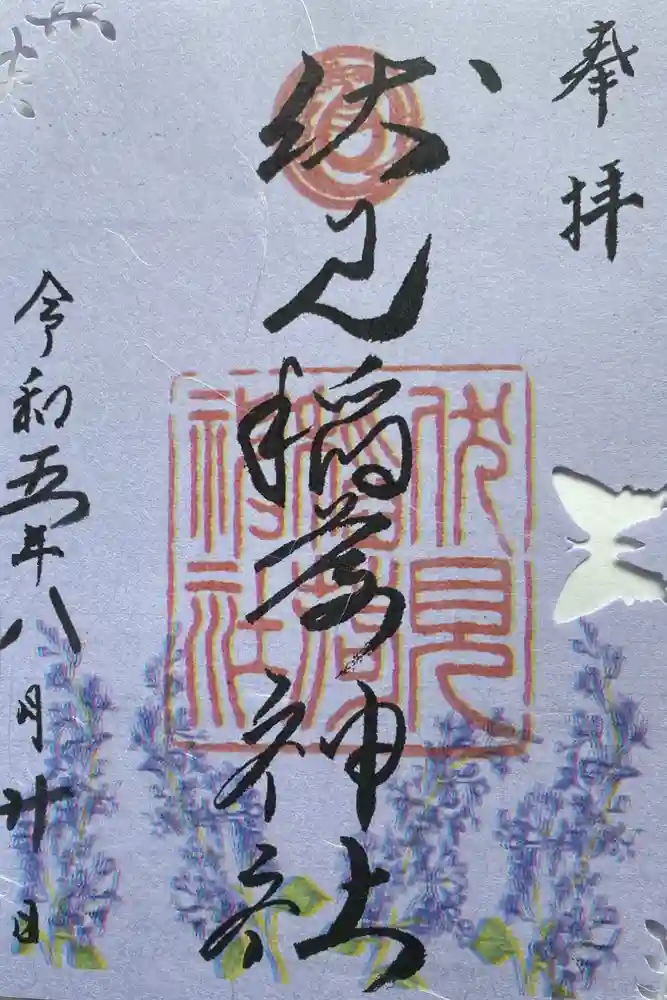 奉拝
伏見稲荷神社
伏見稲荷神社
令和五年八月廿日